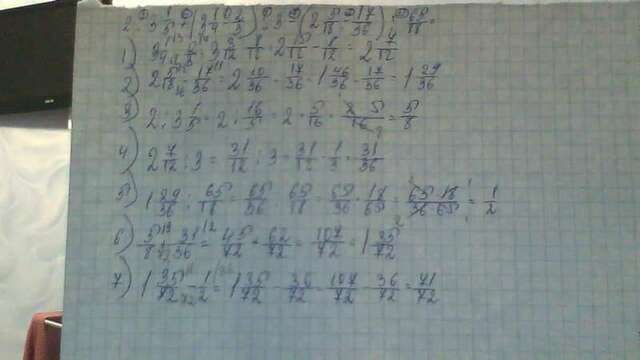 2 : 3 1/5 + (3 1/4 - 2/3) : 3 - (2 5/18 - 17/36) : 65/18 =
1) 3 1/4 - 2/3 = 3 3/12 - 8/12 = 2 15/12 - 8/12 = 2 7/12
2) 2 5/18 - 17/36 = 2 10/36 - 17/36 = 1 46/36 - 17/36 = 1 29/36
3) 2 : 3 1/5 = 2 : 16/5 = 2 · 5/16 = 2·5/16 = 5/8
4) 2 7/12 : 3 = 31/12 : 3 = 31/12 · 1/3 = 31/36
5) 1 29/36 : 65/18 = 65/36 : 65/18 = 65/36 · 18/65 = 65·18/36·65 = 1/2
6) 5/8 + 31/36 = 45/72 + 62/72 = 107/72 = 1 35/72
7) 1 35/72 - 1/2 = 1 35/72 - 36/72 = 107/72 - 36/72 = 71/72